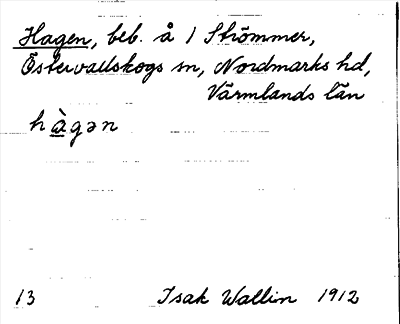 Hagen, beb. å 1 Strömmer,
Östervallskogs sn, Nordmarks hd,
Värmlands län
hàgən
13 Isak Wallin 1912